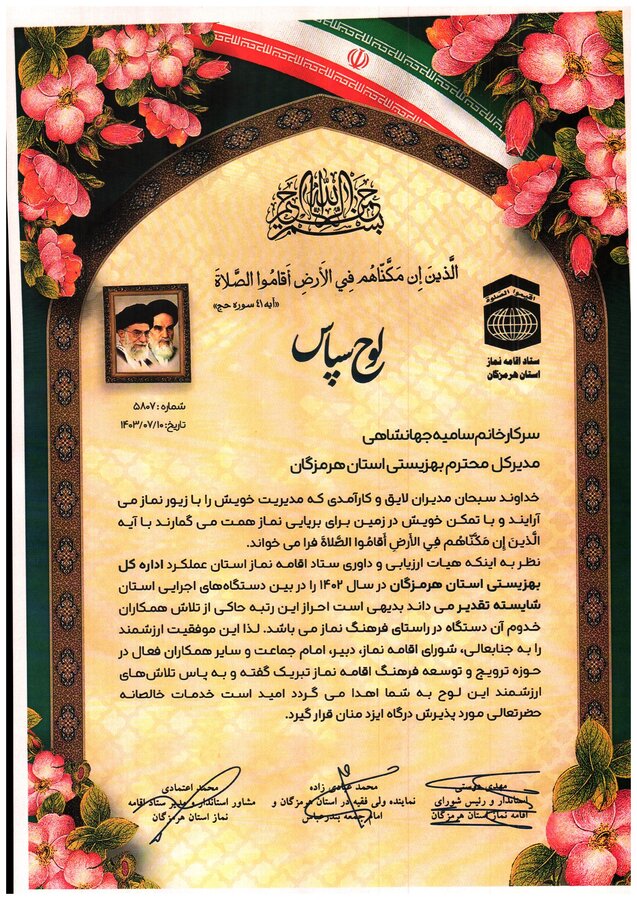 بسم الله الرحمن الرحيم
الَّذينَ إِن مَكَّنّاهُم فِي الأَرضِ أَقامُوا الصَّلاةَ
«آیه ۴۱ سوره حج»
اقیموا الصلوة
ستاد اقامه نماز
استان هرمزگان
لوح سپاس
شماره : ۵۸۰۷
تاریخ: ۱۴۰۳/۰۷/۱۰
سرکار خانم سامیه جهانشاهی
مدیرکل محترم بهزیستی استان هرمزگان
خداوند سبحان مدیران لایق و کارآمدی که مدیریت خویش را با زیور نماز می
آرایند و با تمکن خویش در زمین برای برپایی نماز همت می گمارند با آیه
الَّذينَ إِن مَكَّنّاهُم فِي الأَرضِ أَقامُوا الصَّلاةَ فرا می خواند.
نظر به اینکه هیات ارزیابی و داوری ستاد اقامه نماز استان عملکرد اداره کل
بهزیستی استان هرمزگان در سال ۱۴۰۲ را در بین دستگاه‌های اجرایی استان
شایسته تقدیر می داند بدیهی است احراز این رتبه حاکی از تلاش همکاران
خدوم آن دستگاه در راستای فرهنگ نماز می باشد. لذا این موفقیت ارزشمند
را به جنابعالی، شورای اقامه نماز، دبیر، امام جماعت و سایر همکاران فعال در
حوزه ترویج و توسعه فرهنگ اقامه نماز تبریک گفته و به پاس تلاش‌های
ارزشمند این لوح به شما اهدا می گردد امید است خدمات خالصانه
حضرتعالی مورد پذیرش درگاه ایزد منان قرار گیرد.
مهدی دوستی
استاندار و رئیس شورای
اقامه نماز استان هرمزگان
محمد عبادی زاده
نماینده ولی فقیه در استان هرمزگان و
امام جمعه بندرعباس
محمد اعتمادی
مشاور استاندار و مدیر ستاد اقامه
نماز استان هرمزگان